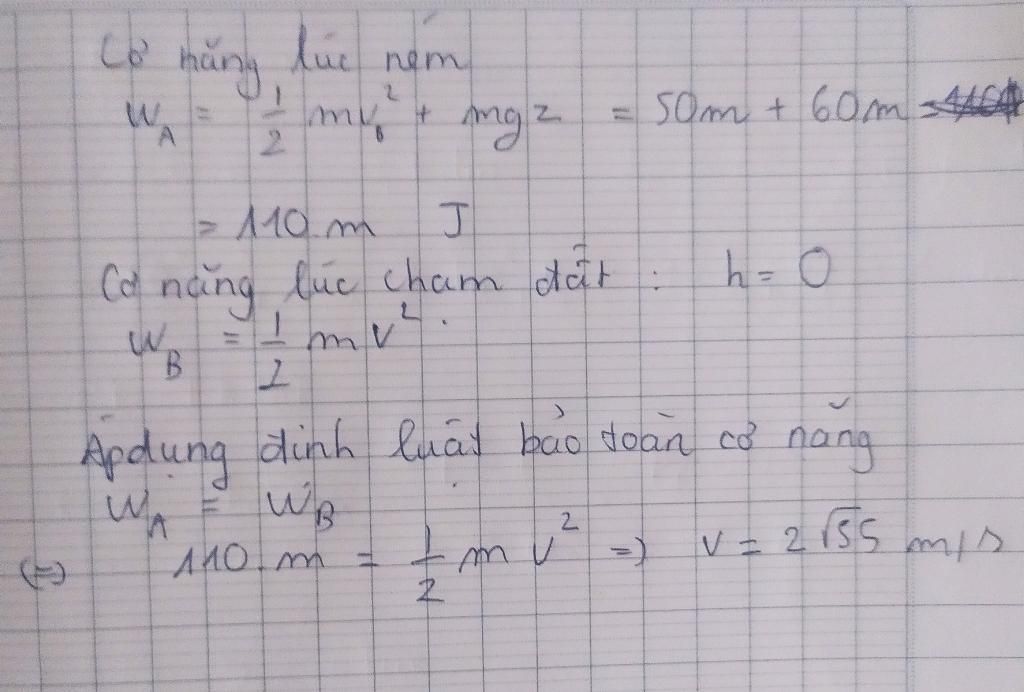 Cơ năng lúc ném
W_A = 1/2 mv₀² + mgz = 50m + 60m
= 110.m J
Cơ năng lúc chạm đất : h = 0
W_B = 1/2 mv²
Áp dụng định luật bảo toàn cơ năng
W_A = W_B
(=) 110.m = 1/2 m v² => v = 2√55 m/s